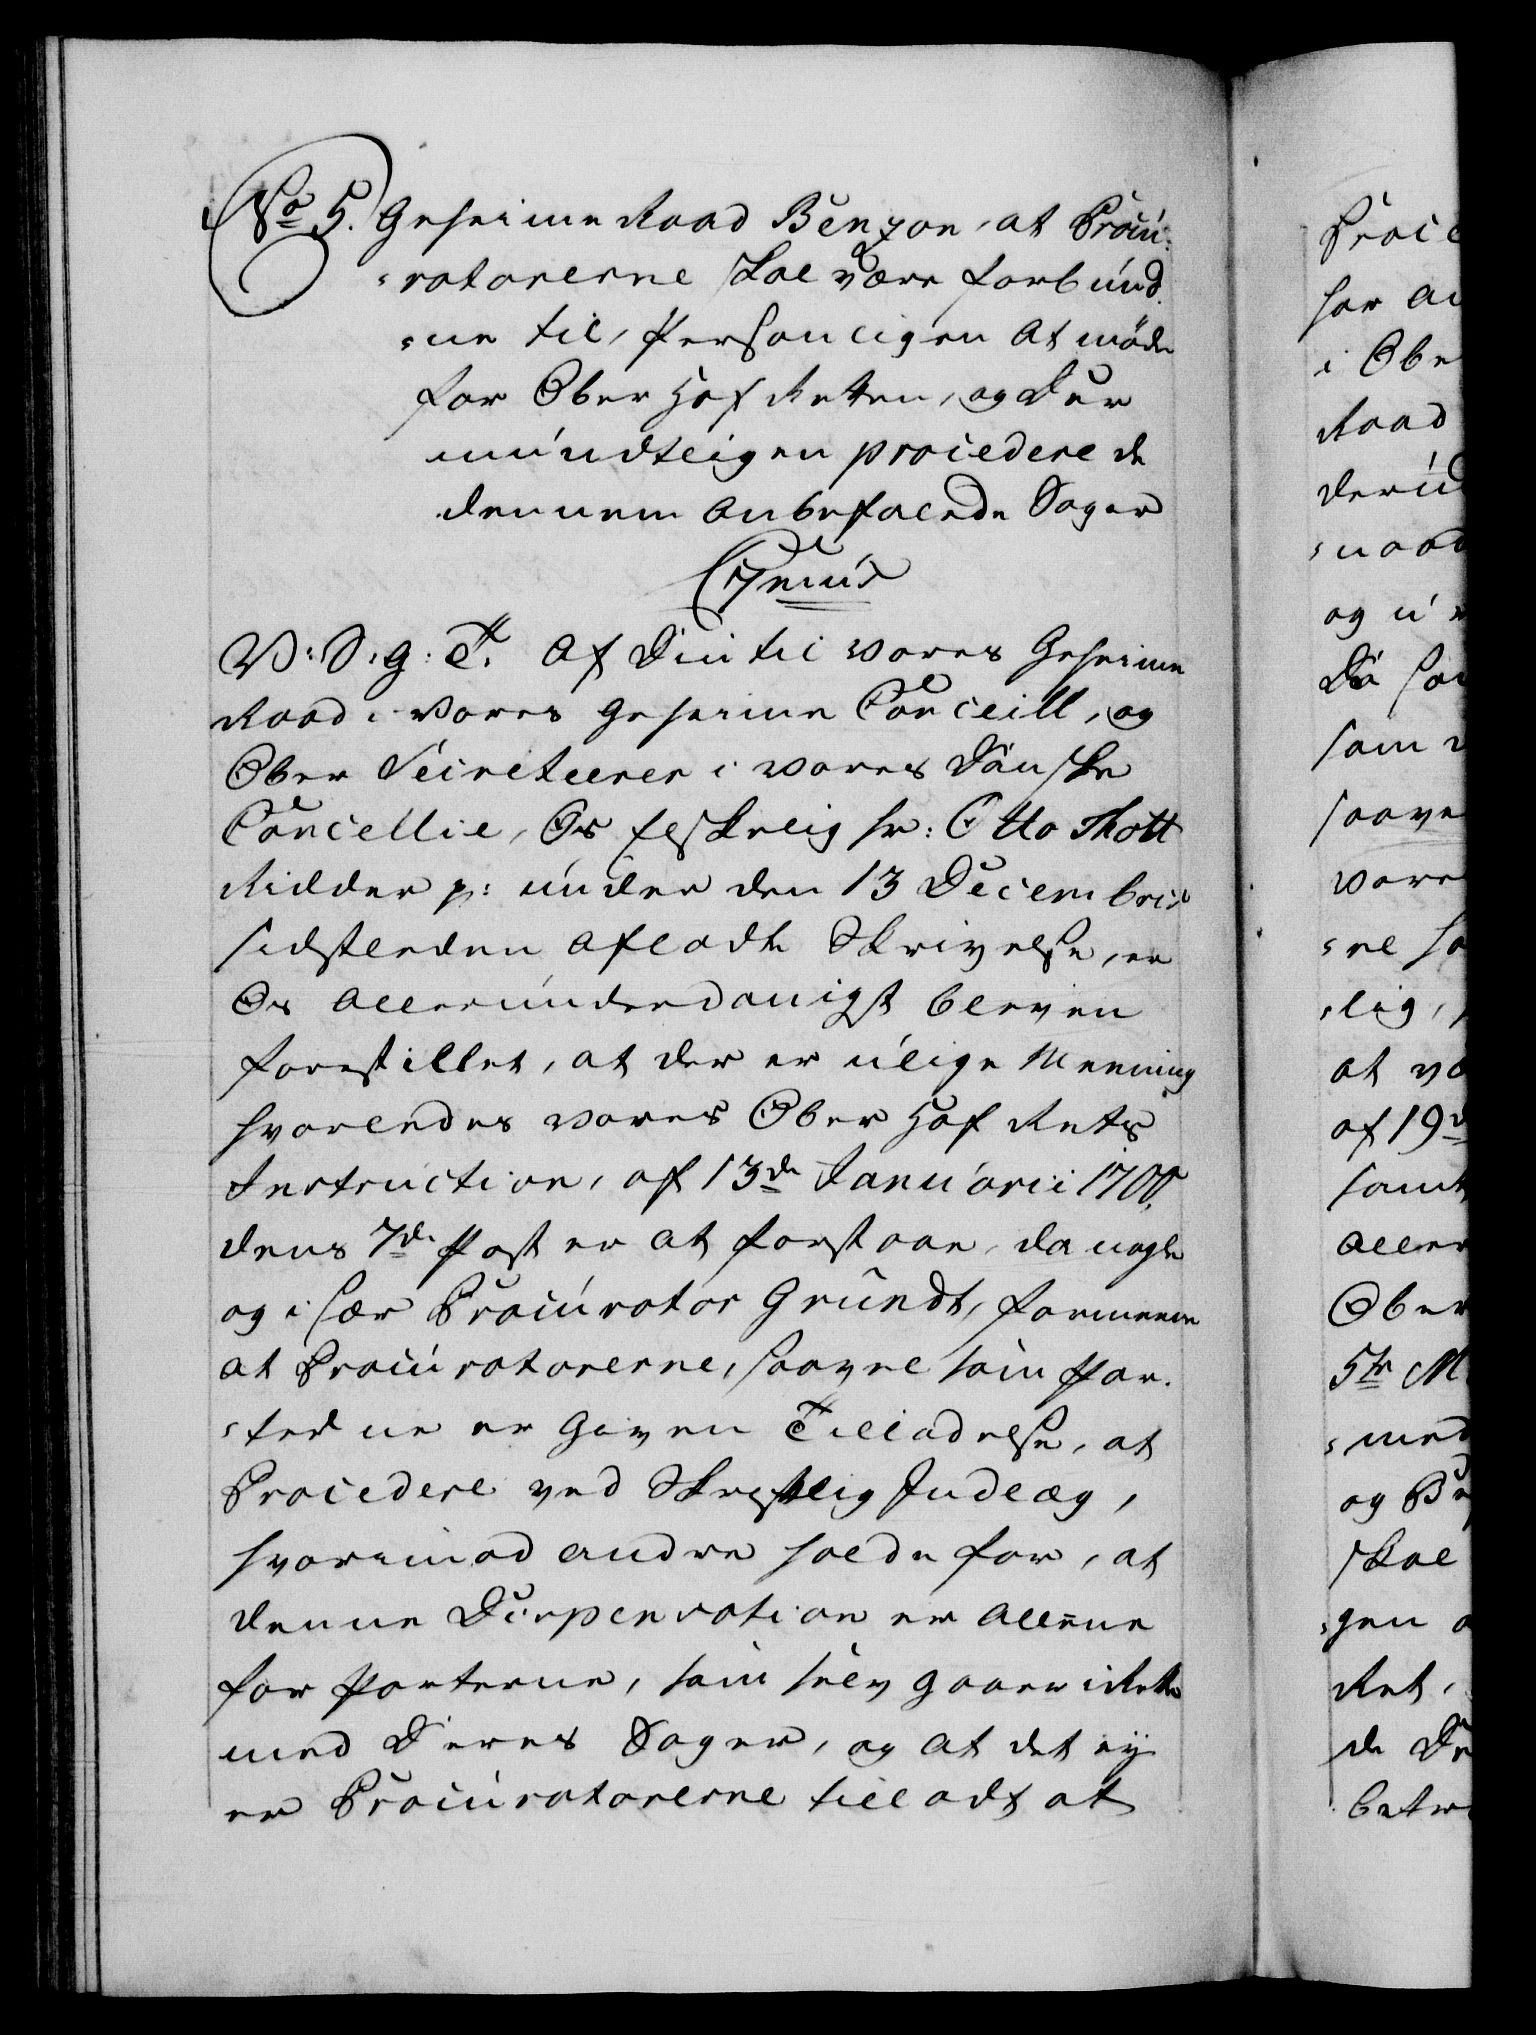 No 5. Geheime Raad Benzon, at Procu-
-ratorerne skal være forbund-
-ne til, Personligen at møde
for Ober Hof Retten, og der
mundtligen procedere de
dennem anbefalede Sager
C: 7mus
V: S: g: T. Af Din til vores Geheime
Raad i vores Geheime Conceill, og
Ober Secreteerer i vores Danske
Cancellie, Os Elskelig Hr: Otto Thott
Ridder p: under den 13 Decembris
sidstleden afladte Skrivelse, er
Os allerunderdanigst bleven
forestillet, at der er ulige Meening
hvorledes vores Ober Hof Rets
Instruction, af 13de Januarii 1700.
dens 7de Post er at forstaae, da nogle
og i sær Procurator Grundt, formeene
at Procuratorerne, saavel som Par-
-terne er given Tilladelse, at
Procedere ved Skriftlig Indlæg,
hvorimod andre holde for, at
denne Dispensation er allene
for Parterne, som selv gaaer i Rette
med Deres Sager, og at det ey
er Procuratorerne tilladt at
Proce
har
i Obe
Raad
derud
og
som
saave
vore
-lig,
at
af 19de
samt
aller
Ober
5te M
-med
og
skal
-gen
Ret,
de De